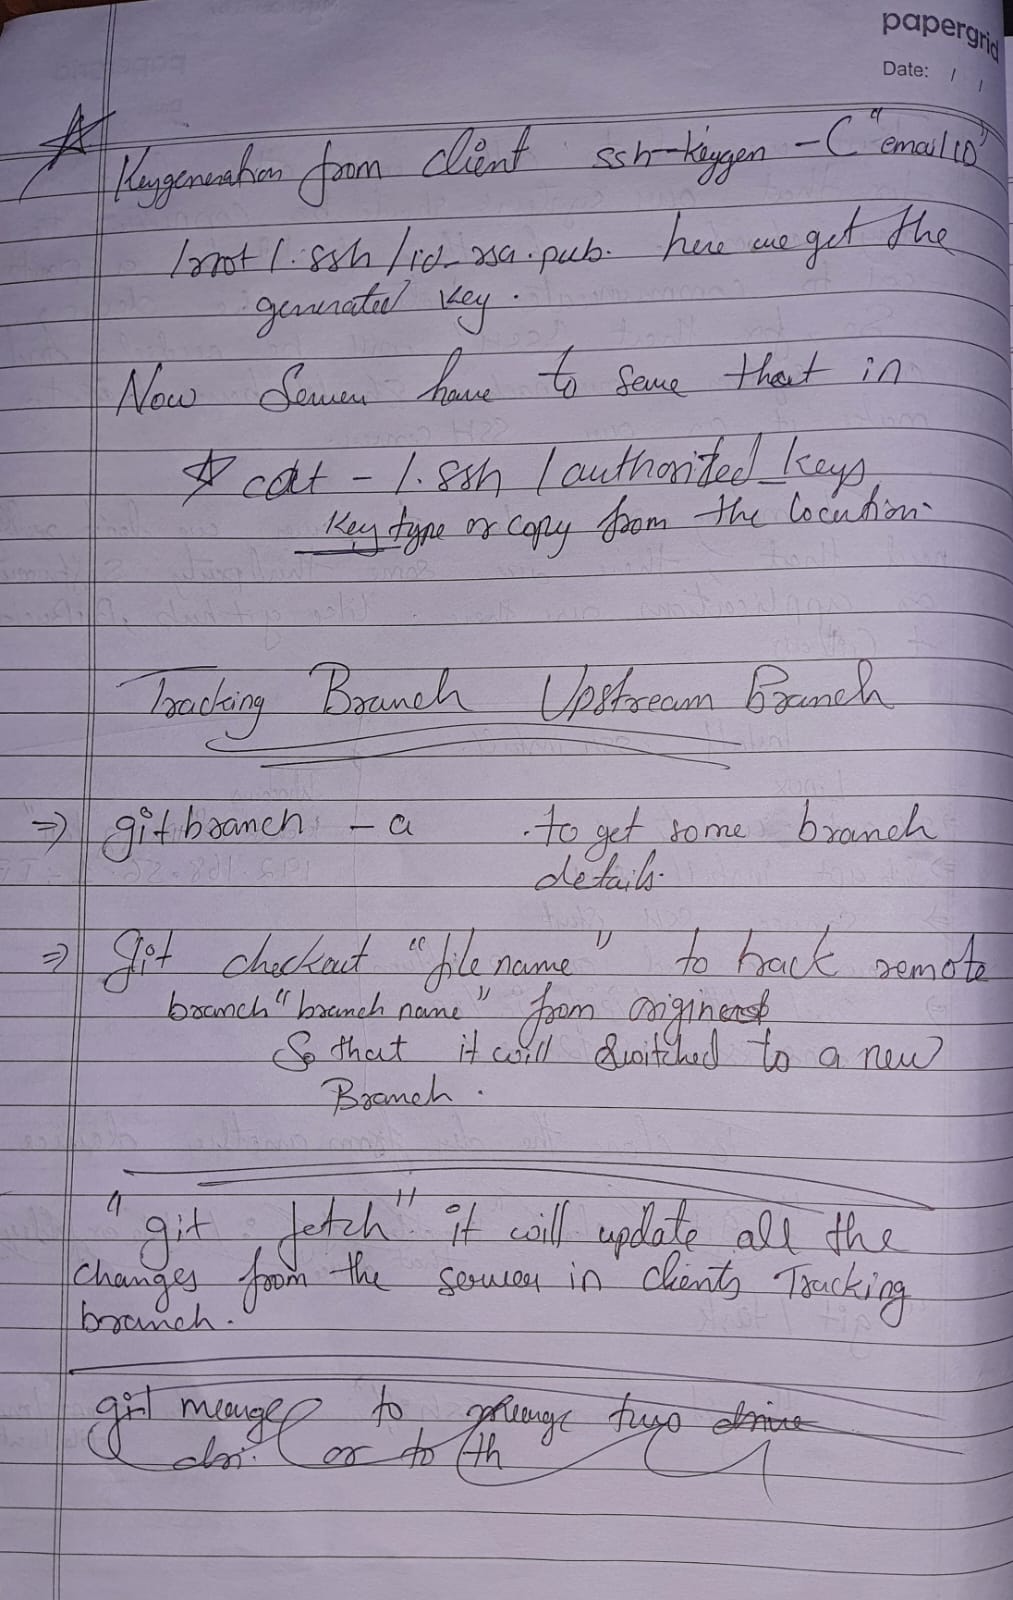 papergrid
Date: / /
Keygeneration from client ssh-keygen -C "email ID"
/root/.ssh/id_rsa.pub. here we get the
generated key.
Now Server have to save that in
cat - /.ssh/authorited_keys
Key type or copy from the location.
Tracking Branch Upstream Branch
=> git branch - a . to get some branch
details.
=> Git checkout "file name" to track remote
branch "branch name" from origin
So that it will switched to a new
Branch.
"git fetch" it will update all the
changes from the server in clients Tracking
branch.
git merge to merge two drive
dri. or to th